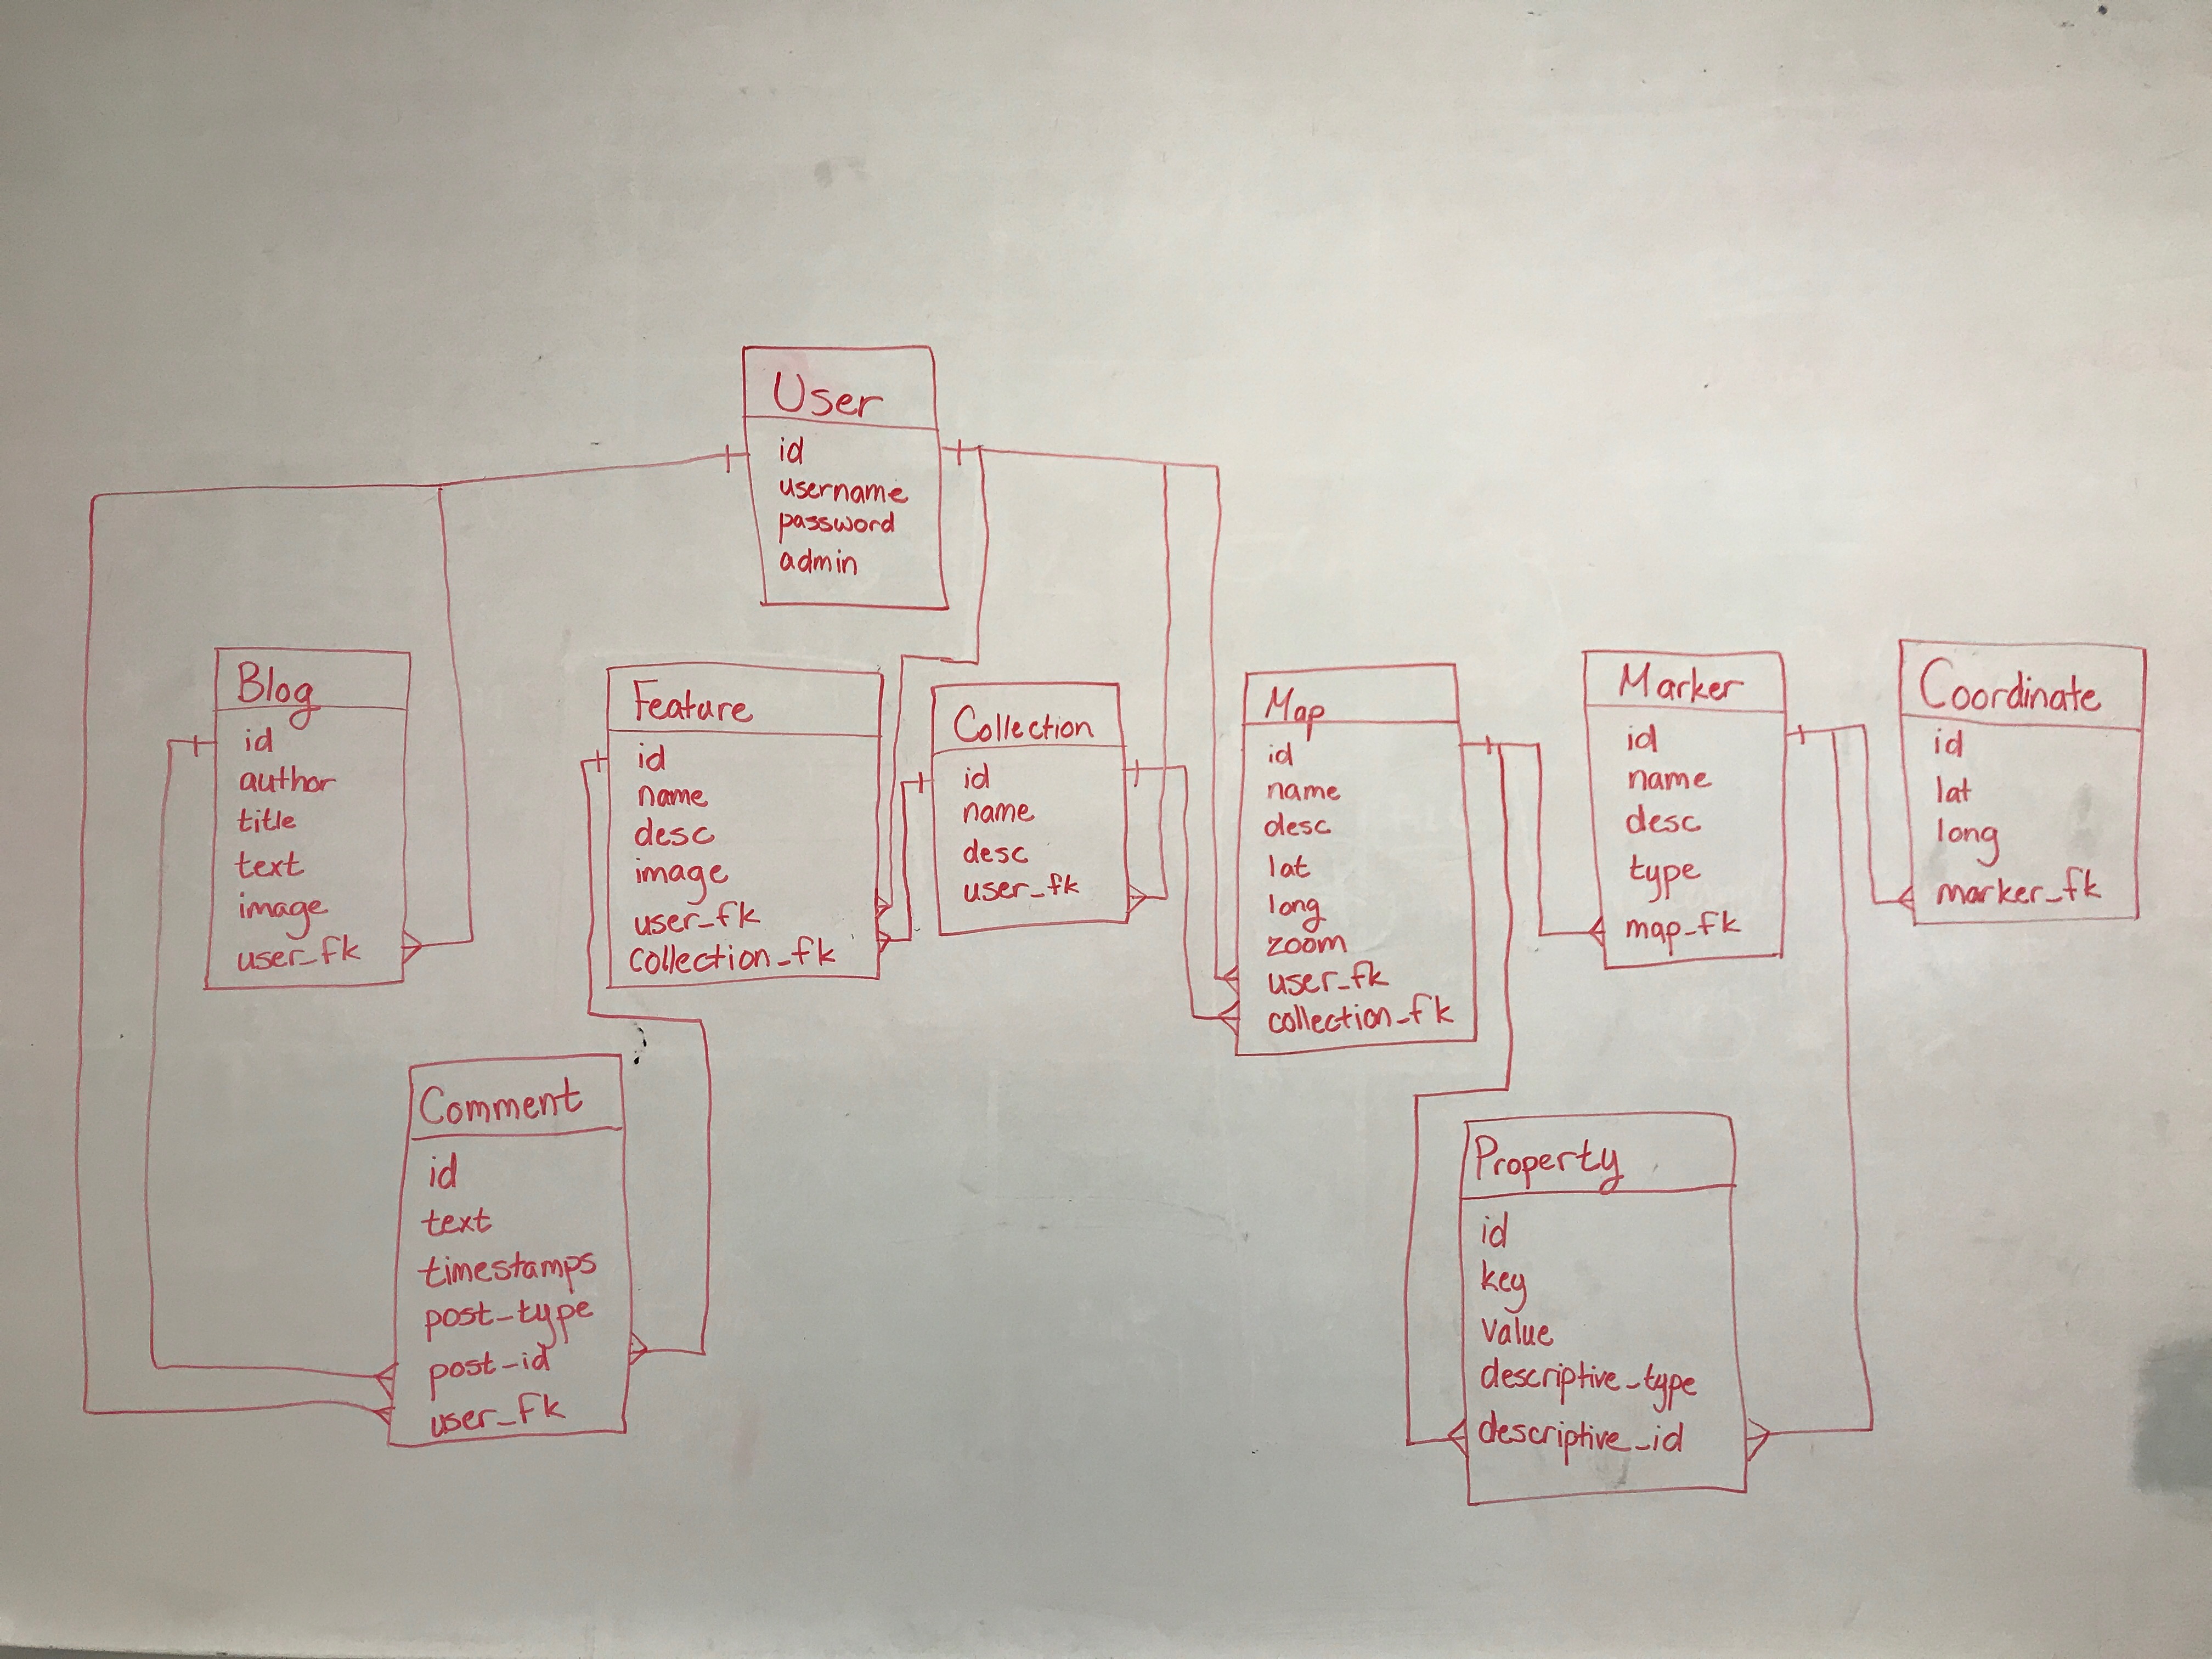 User
id
username
password
admin
Blog
id
author
title
text
image
user_fk
Feature
id
name
desc
image
user_fk
collection_fk
Collection
id
name
desc
user_fk
Map
id
name
desc
lat
long
zoom
user_fk
collection_fk
Marker
id
name
desc
type
map_fk
Coordinate
id
lat
long
marker_fk
Comment
id
text
timestamps
post_type
post_id
user_fk
Property
id
key
value
descriptive_type
descriptive_id